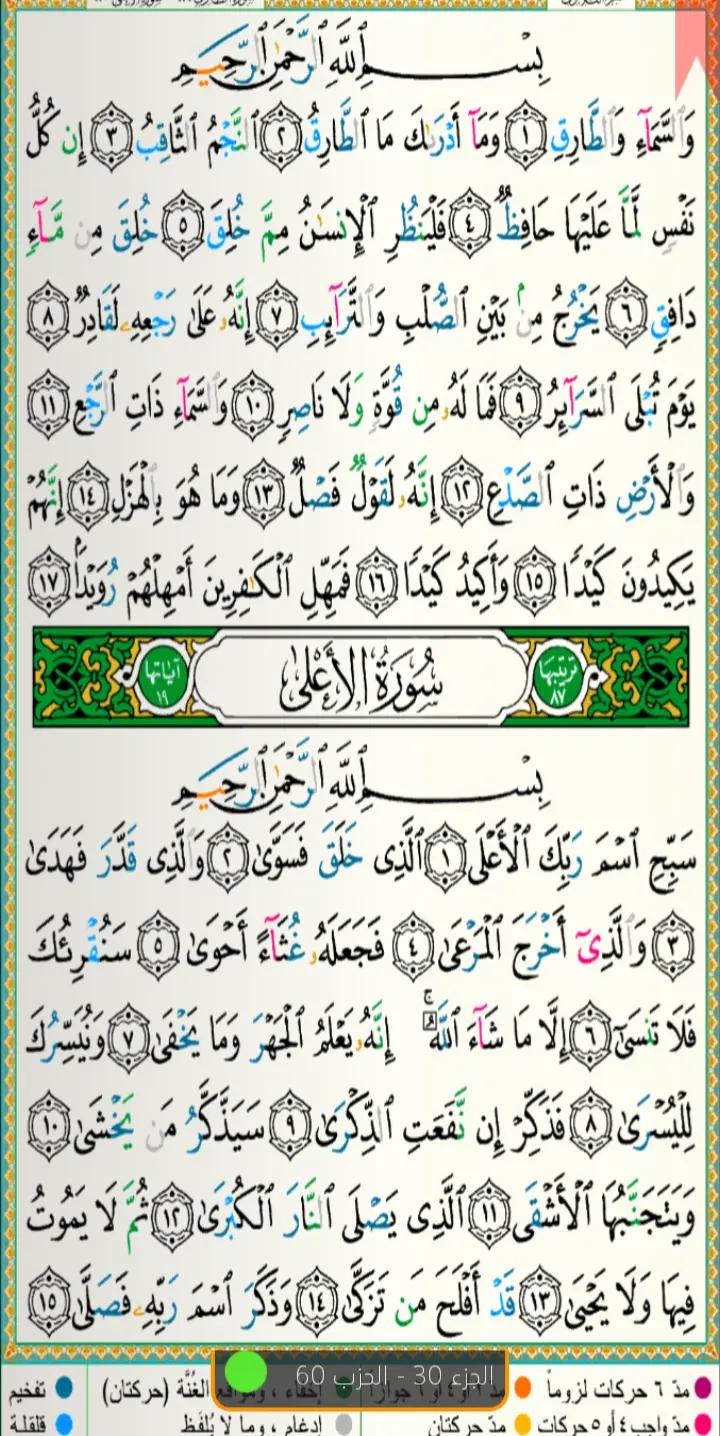 بِسْمِ ٱللَّهِ ٱلرَّحْمَٰنِ ٱلرَّحِيمِ
وَٱلسَّمَآءِ وَٱلطَّارِقِ ١ وَمَآ أَدْرَىٰكَ مَا ٱلطَّارِقُ ٢ ٱلنَّجْمُ ٱلثَّاقِبُ ٣ إِن كُلُّ
نَفْسٍ لَّمَّا عَلَيْهَا حَافِظٌ ٤ فَلْيَنظُرِ ٱلْإِنسَٰنُ مِمَّ خُلِقَ ٥ خُلِقَ مِن مَّآءٍ
دَافِقٍ ٦ يَخْرُجُ مِنۢ بَيْنِ ٱلصُّلْبِ وَٱلتَّرَآئِبِ ٧ إِنَّهُۥ عَلَىٰ رَجْعِهِۦ لَقَادِرٌ ٨
يَوْمَ تُبْلَى ٱلسَّرَآئِرُ ٩ فَمَا لَهُۥ مِن قُوَّةٍ وَلَا نَاصِرٍ ١٠ وَٱلسَّمَآءِ ذَاتِ ٱلرَّجْعِ ١١
وَٱلْأَرْضِ ذَاتِ ٱلصَّدْعِ ١٢ إِنَّهُۥ لَقَوْلٌ فَصْلٌ ١٣ وَمَا هُوَ بِٱلْهَزْلِ ١٤ إِنَّهُمْ
يَكِيدُونَ كَيْدًا ١٥ وَأَكِيدُ كَيْدًا ١٦ فَمَهِّلِ ٱلْكَٰفِرِينَ أَمْهِلْهُمْ رُوَيْدًۢا ١٧
ترتيبها ٨٧ سُورَةُ الأَعْلَىٰ آياتها ١٩
بِسْمِ ٱللَّهِ ٱلرَّحْمَٰنِ ٱلرَّحِيمِ
سَبِّحِ ٱسْمَ رَبِّكَ ٱلْأَعْلَى ١ ٱلَّذِى خَلَقَ فَسَوَّىٰ ٢ وَٱلَّذِى قَدَّرَ فَهَدَىٰ
٣ وَٱلَّذِىٓ أَخْرَجَ ٱلْمَرْعَىٰ ٤ فَجَعَلَهُۥ غُثَآءً أَحْوَىٰ ٥ سَنُقْرِئُكَ
فَلَا تَنسَىٰٓ ٦ إِلَّا مَا شَآءَ ٱللَّهُ ۚ إِنَّهُۥ يَعْلَمُ ٱلْجَهْرَ وَمَا يَخْفَىٰ ٧ وَنُيَسِّرُكَ
لِلْيُسْرَىٰ ٨ فَذَكِّرْ إِن نَّفَعَتِ ٱلذِّكْرَىٰ ٩ سَيَذَّكَّرُ مَن يَخْشَىٰ ١٠
وَيَتَجَنَّبُهَا ٱلْأَشْقَى ١١ ٱلَّذِى يَصْلَى ٱلنَّارَ ٱلْكُبْرَىٰ ١٢ ثُمَّ لَا يَمُوتُ
فِيهَا وَلَا يَحْيَىٰ ١٣ قَدْ أَفْلَحَ مَن تَزَكَّىٰ ١٤ وَذَكَرَ ٱسْمَ رَبِّهِۦ فَصَلَّىٰ ١٥
الجزء 30 - الحزب 60
مدّ ٦ حركات لزوماً مدّ ٢ أو ٤ أو ٦ جوازاً إخفاء ، ومواقع الغُنَّة (حركتان) تفخيم
مدّ واجب ٤ أو ٥ حركات مدّ حركتان إدغام ، وما لا يُلفَظ قلقلة